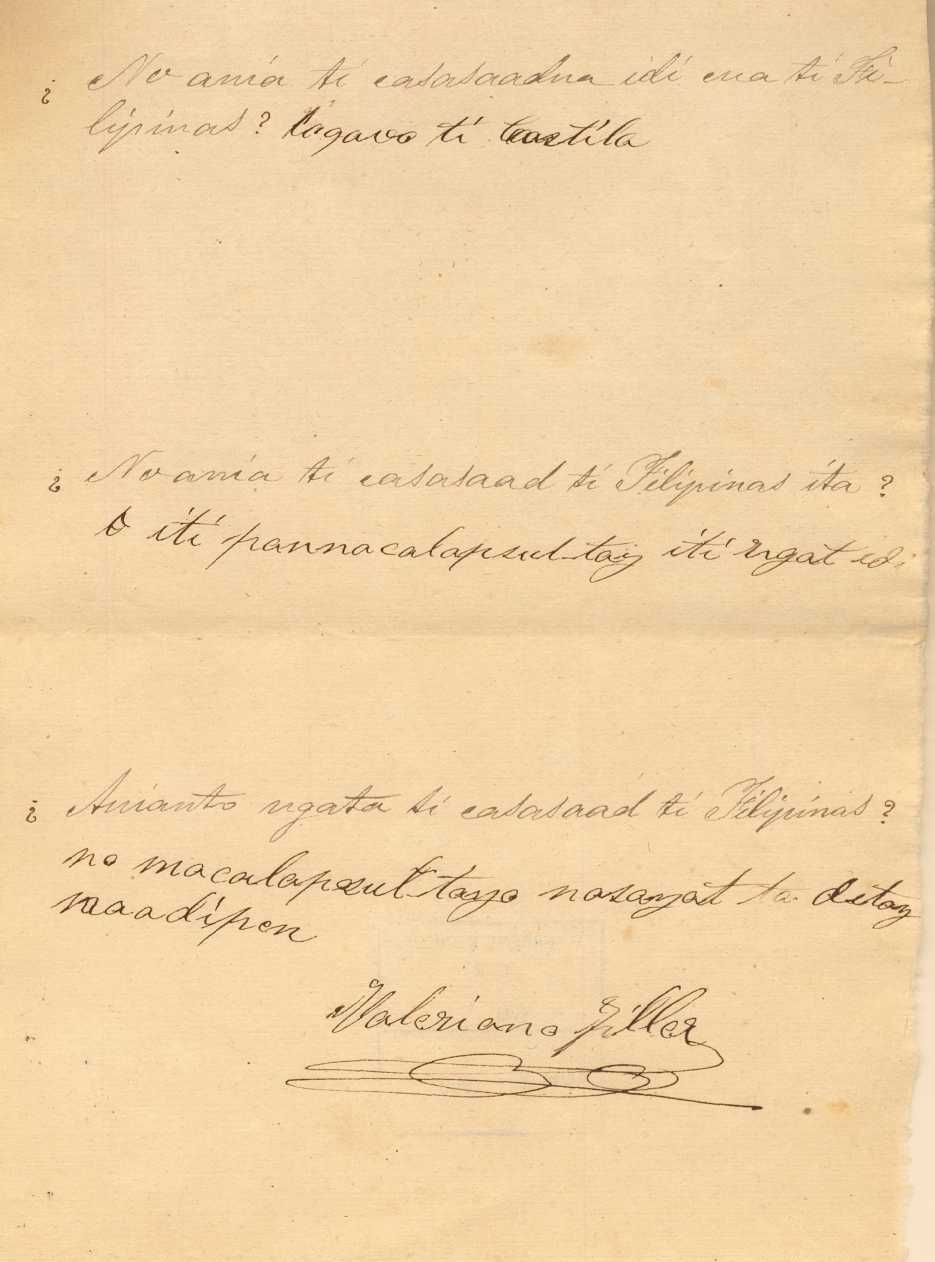 ¿ No ania ti casasaadna idi cua ti Fi-
lipinas? tagavo ti Castila
¿ No ania ti casasaad ti Filipinas ita?
iti pannacalapsut-tay iti ngat idi
¿ Anianto ngata ti casasaad ti Filipinas?
no macalapsut-tayo nasayat ta ditay
maadipen
Valeriano